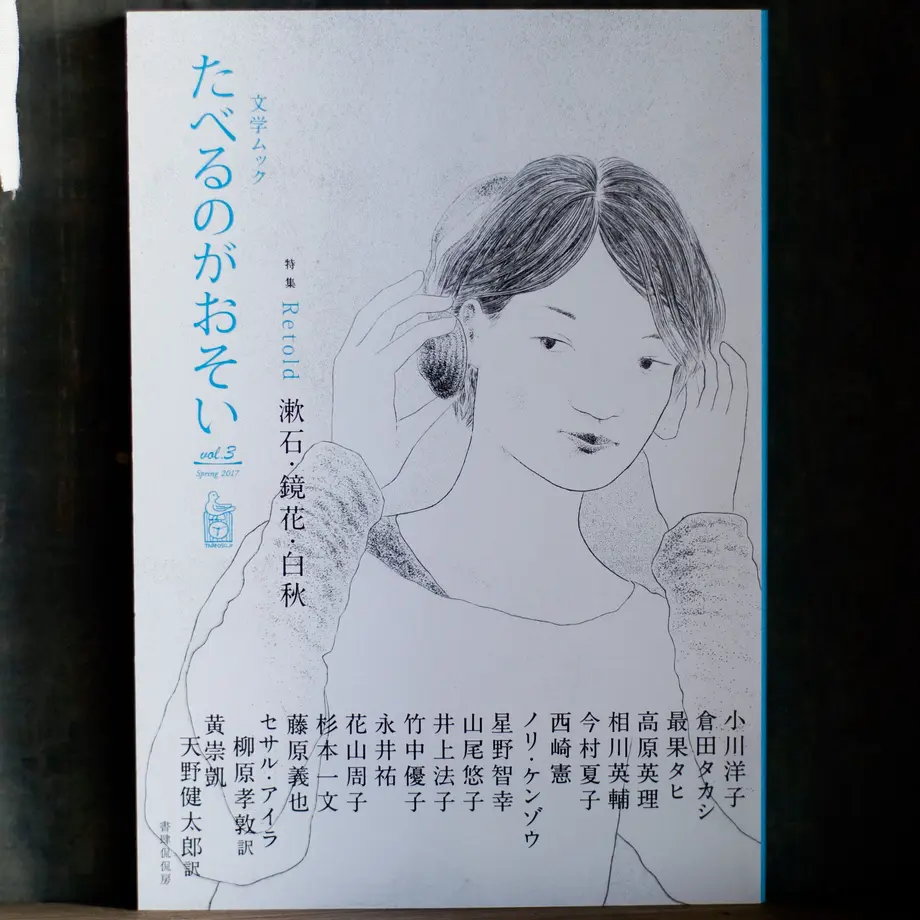 文学ムック
たべるのがおそい
vol.3
Spring 2017
特集
Retold
漱石・鏡花・白秋
小川洋子
倉田タカシ
最果タヒ
高原英理
相川英輔
今村夏子
西崎憲
ノリ・ケンゾウ
星野智幸
山尾悠子
井上法子
竹中優子
永井祐
花山周子
杉本一文
藤原義也
セサル・アイラ
柳原孝敦訳
黄崇凱
天野健太郎訳
書肆侃侃房